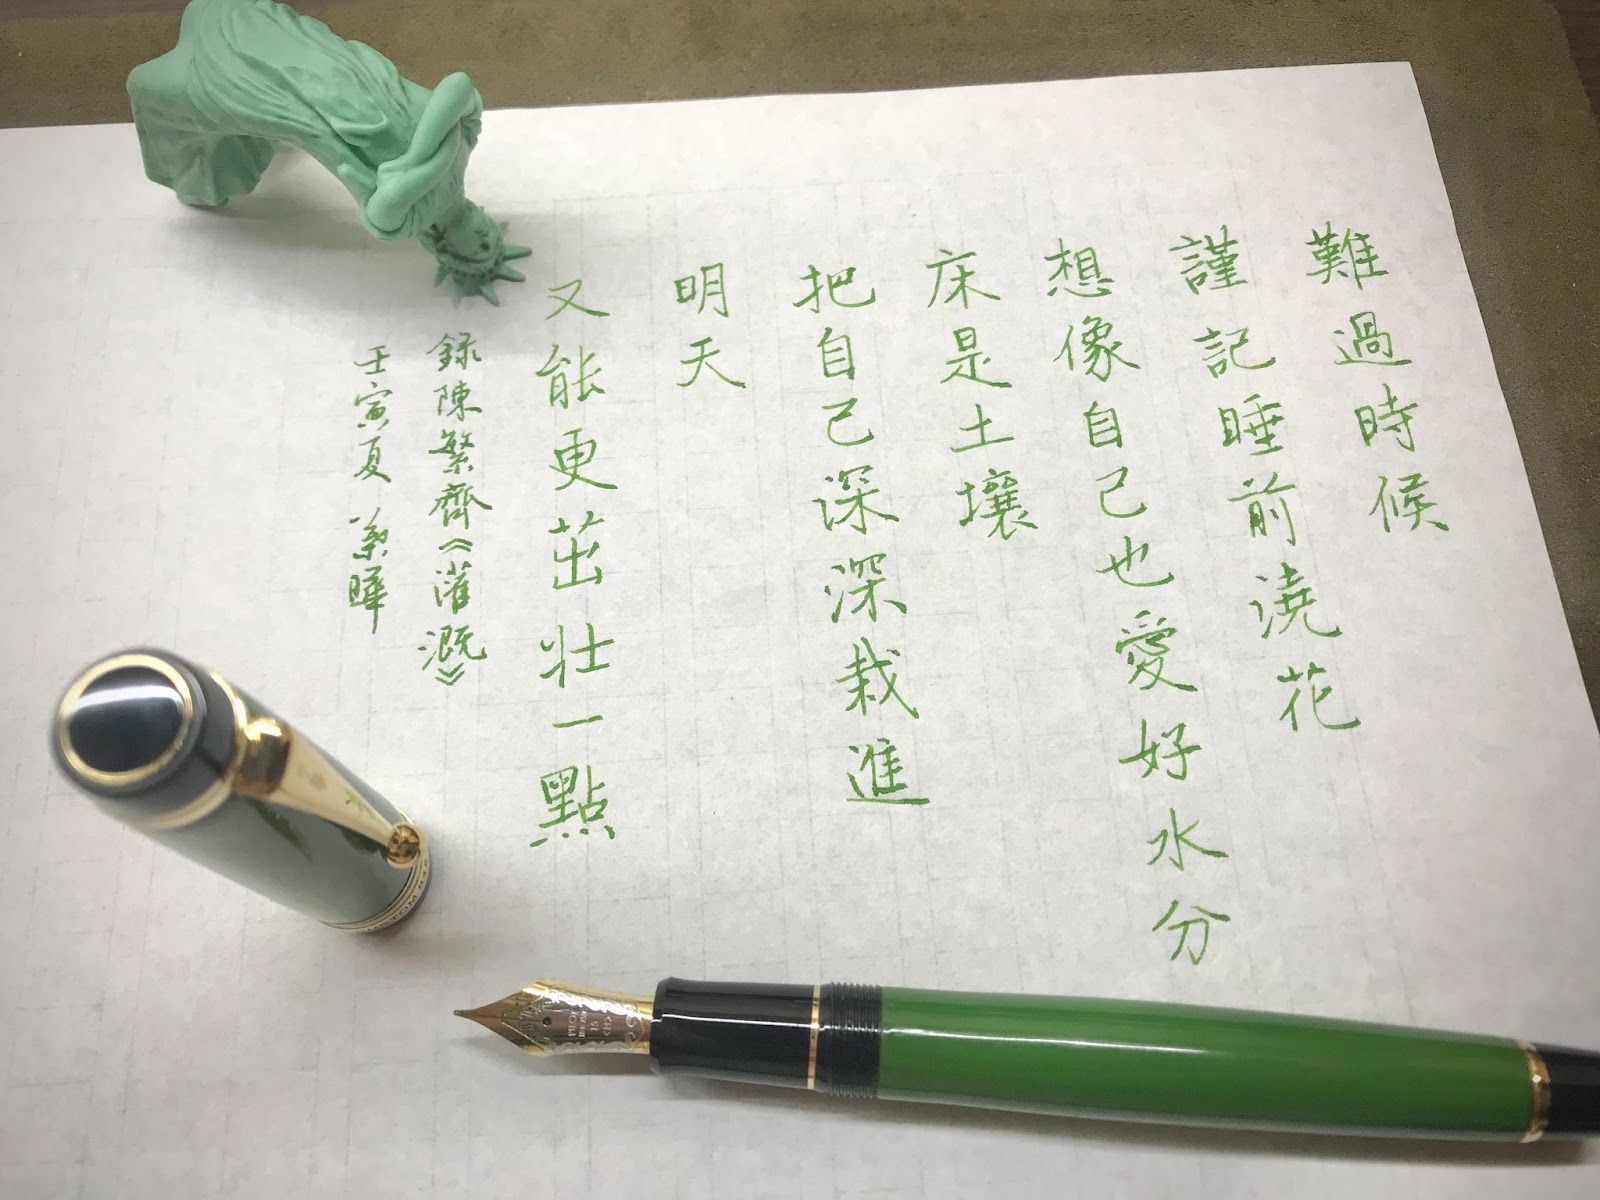 難過時候
謹記睡前澆花
想像自己也愛好水分
床是土壤
把自己深深栽進
明天
又能更茁壯一點
錄陳繁齊《灌溉》
壬寅夏 葉曄
PILOT